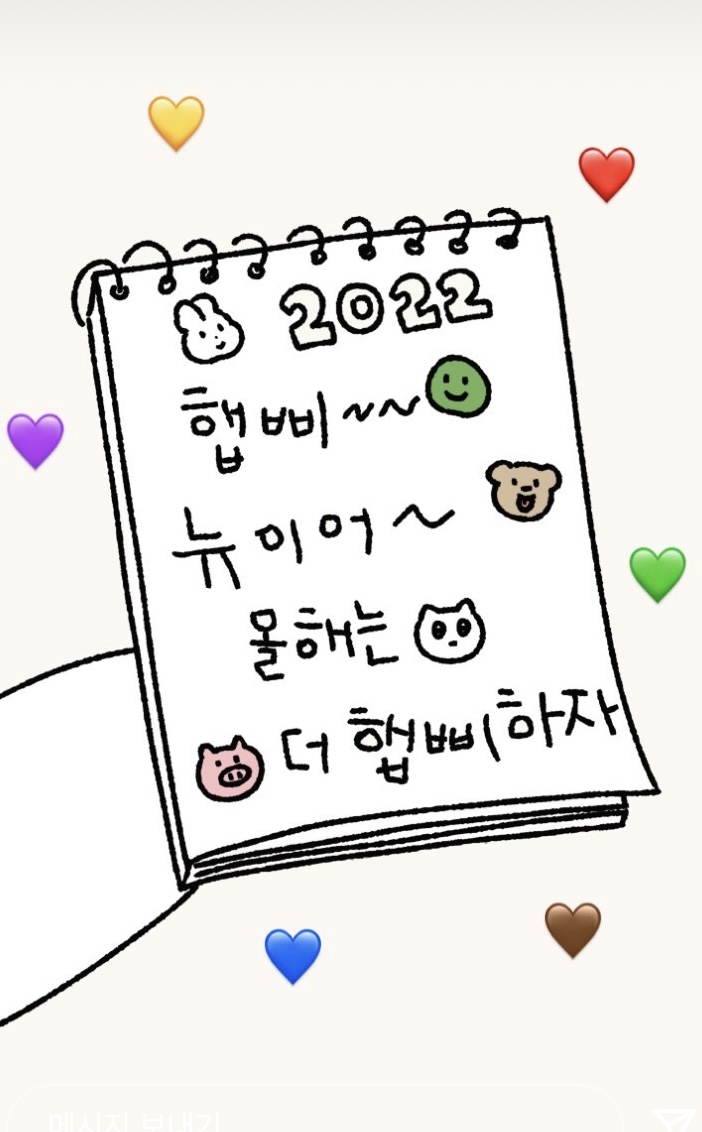 2022
햅삐~~
뉴이어~
올해는
더 햅삐하자
메시지 보내기